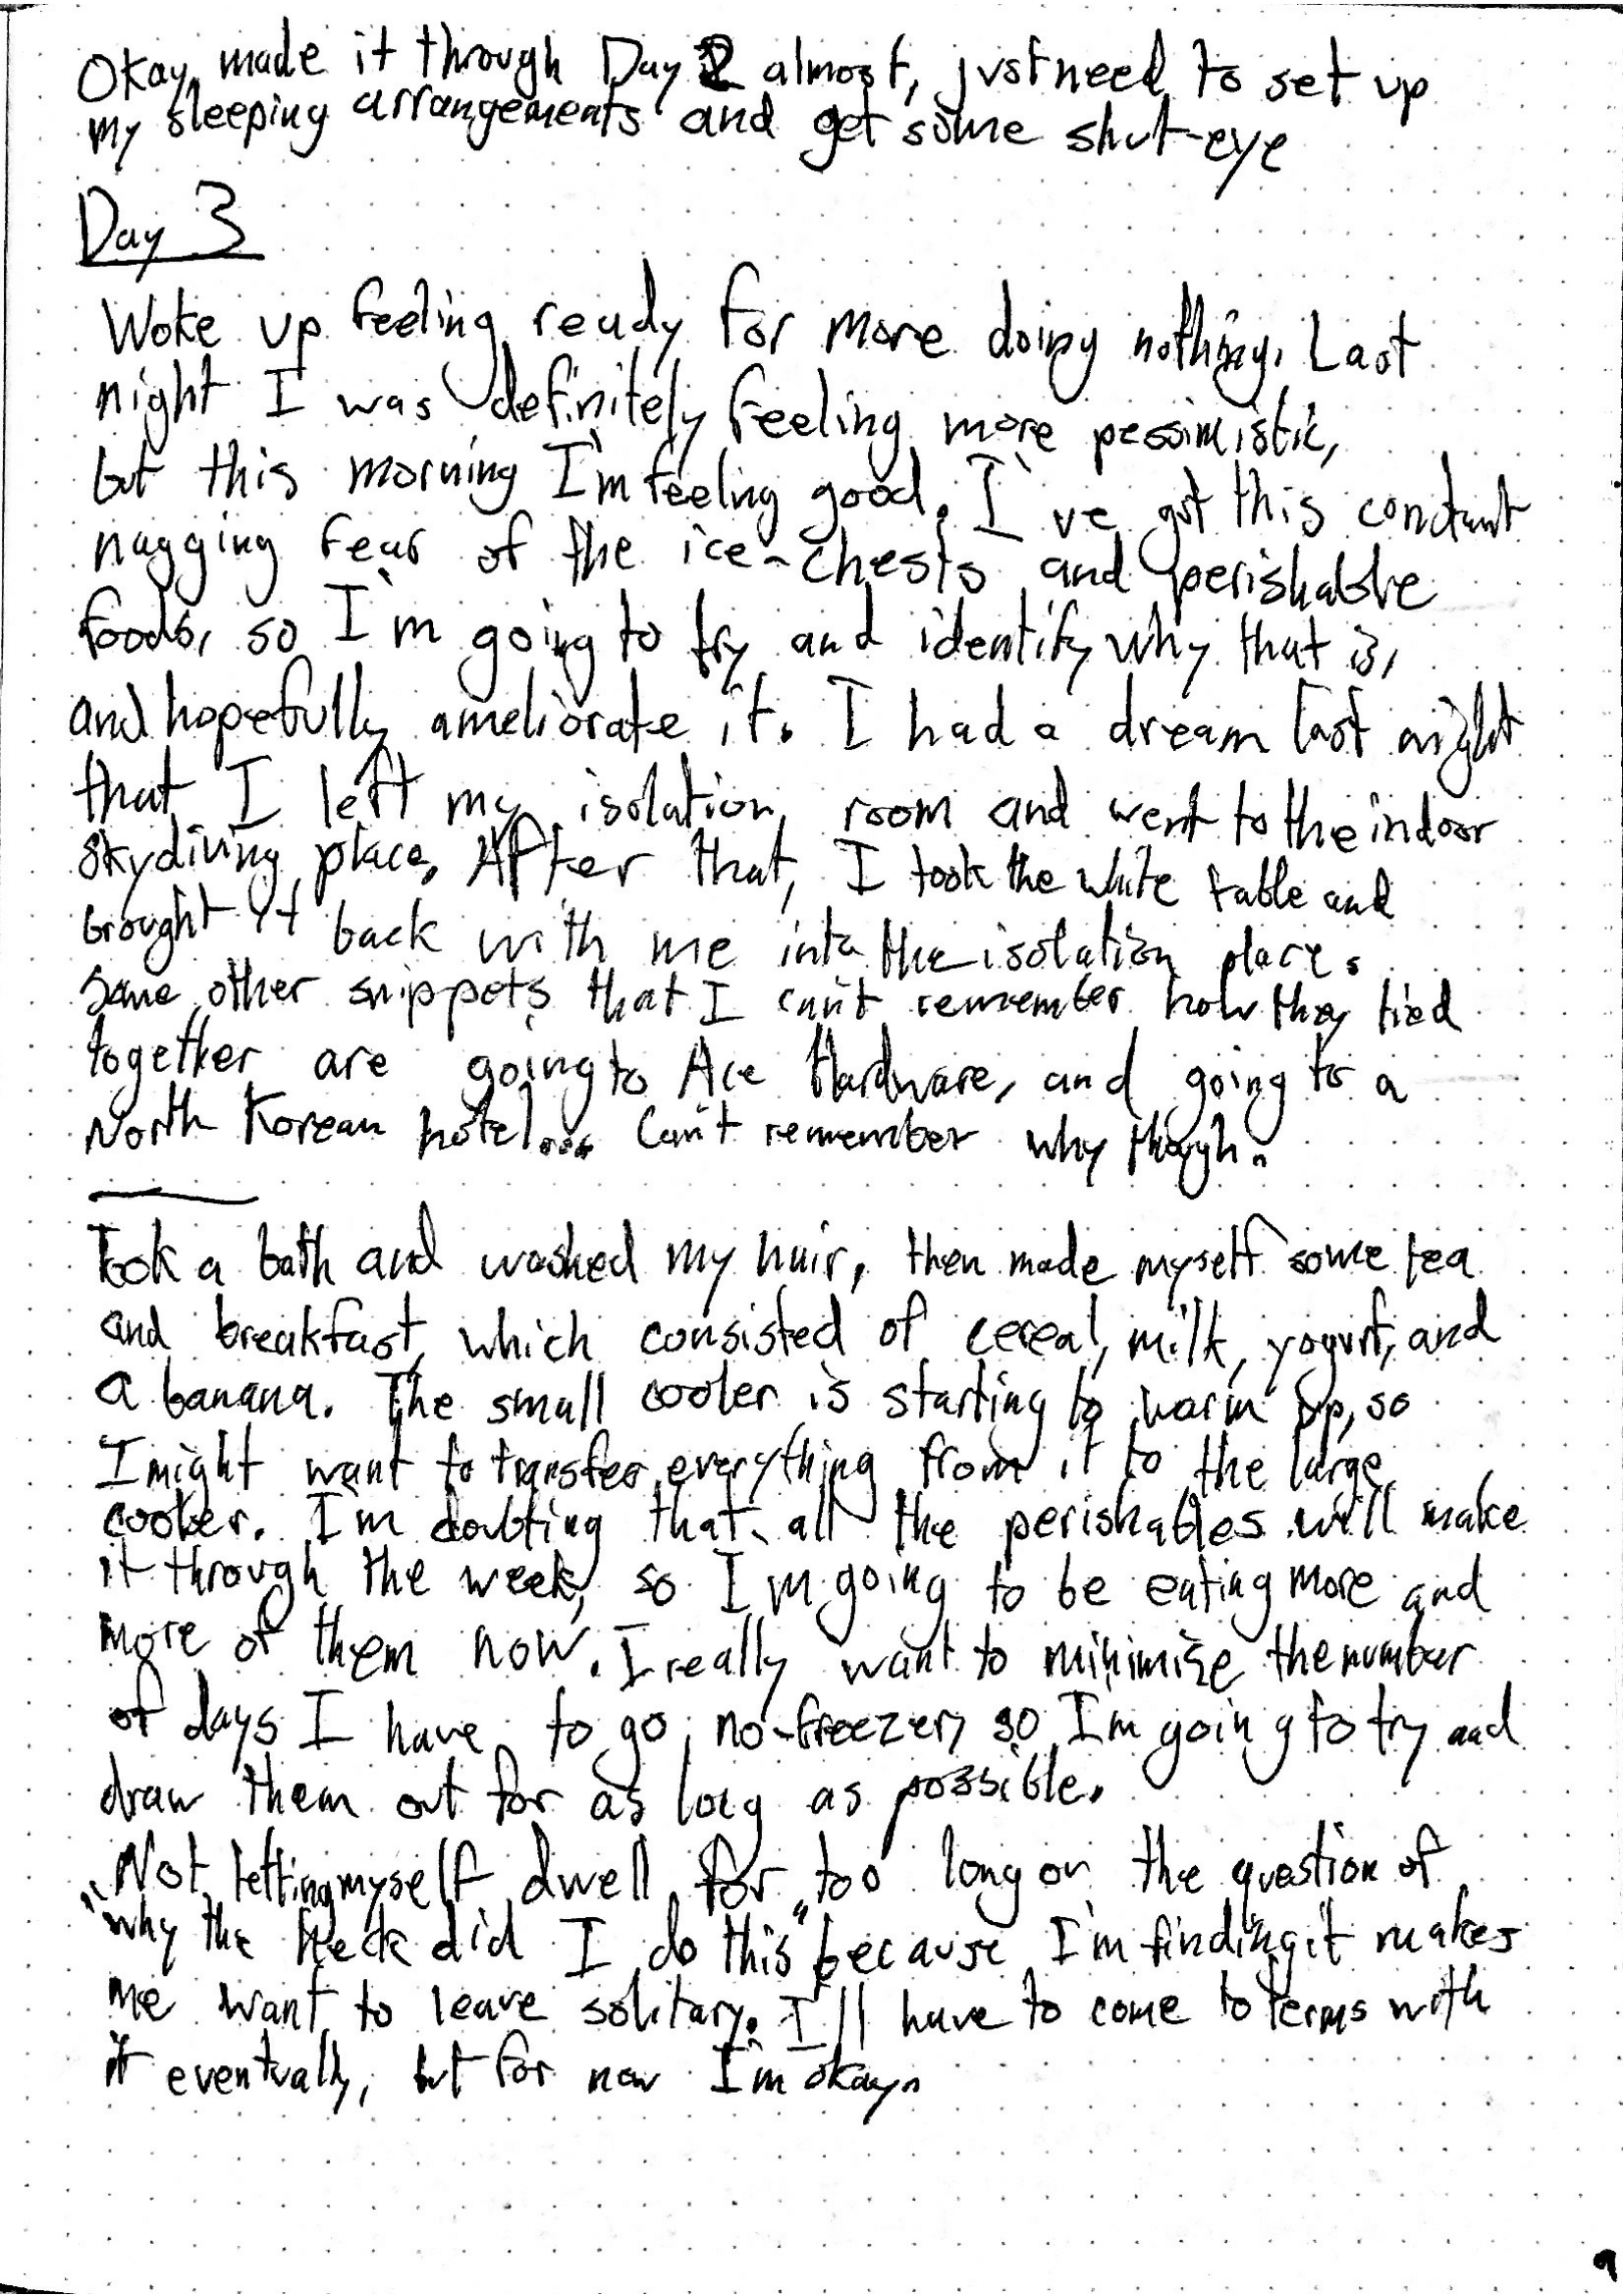 Okay, made it through Day 2 almost, just need to set up
my sleeping arrangements and get some shut-eye
Day 3
Woke up feeling ready for more doing nothing. Last
night I was definitely feeling more pessimistic,
but this morning I'm feeling good. I've got this constant
nagging fear of the ice-chests and perishable
foods, so I'm going to try and identify why that is,
and hopefully ameliorate it. I had a dream last night
that I left my isolation room and went to the indoor
skydiving place. After that, I took the white table and
brought it back with me into the isolation place.
Some other snippets that I can't remember how they tied
together are going to Ace Hardware, and going to a
North Korean hotel... Can't remember why though.
Took a bath and washed my hair, then made myself some tea
and breakfast, which consisted of cereal, milk, yogurt, and
a banana. The small cooler is starting to warm up, so
I might want to transfer everything from it to the large
cooler. I'm doubting that all the perishables will make
it through the week, so I'm going to be eating more and
more of them now. I really want to minimize the number
of days I have to go no-freezer, so I'm going to try and
draw them out for as long as possible.
Not letting myself dwell for too long on the question of
"why the heck did I do this" because I'm finding it makes
me want to leave solitary. I'll have to come to terms with
it eventually, but for now I'm okay.
9